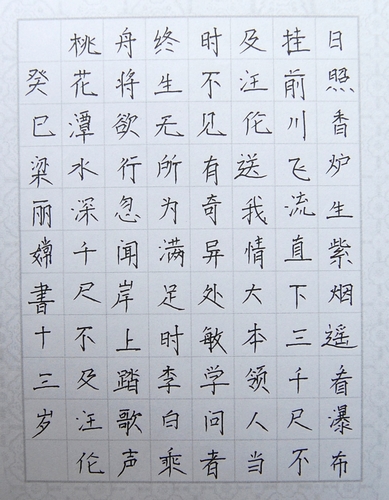 日照香炉生紫烟遥看瀑布
挂前川飞流直下三千尺不
及汪伦送我情大本领人当
时不见有奇异处敏学问者
终生无所为满足时李白乘
舟将欲行忽闻岸上踏歌声
桃花潭水深千尺不及汪伦
癸巳梁丽嫦書十三岁